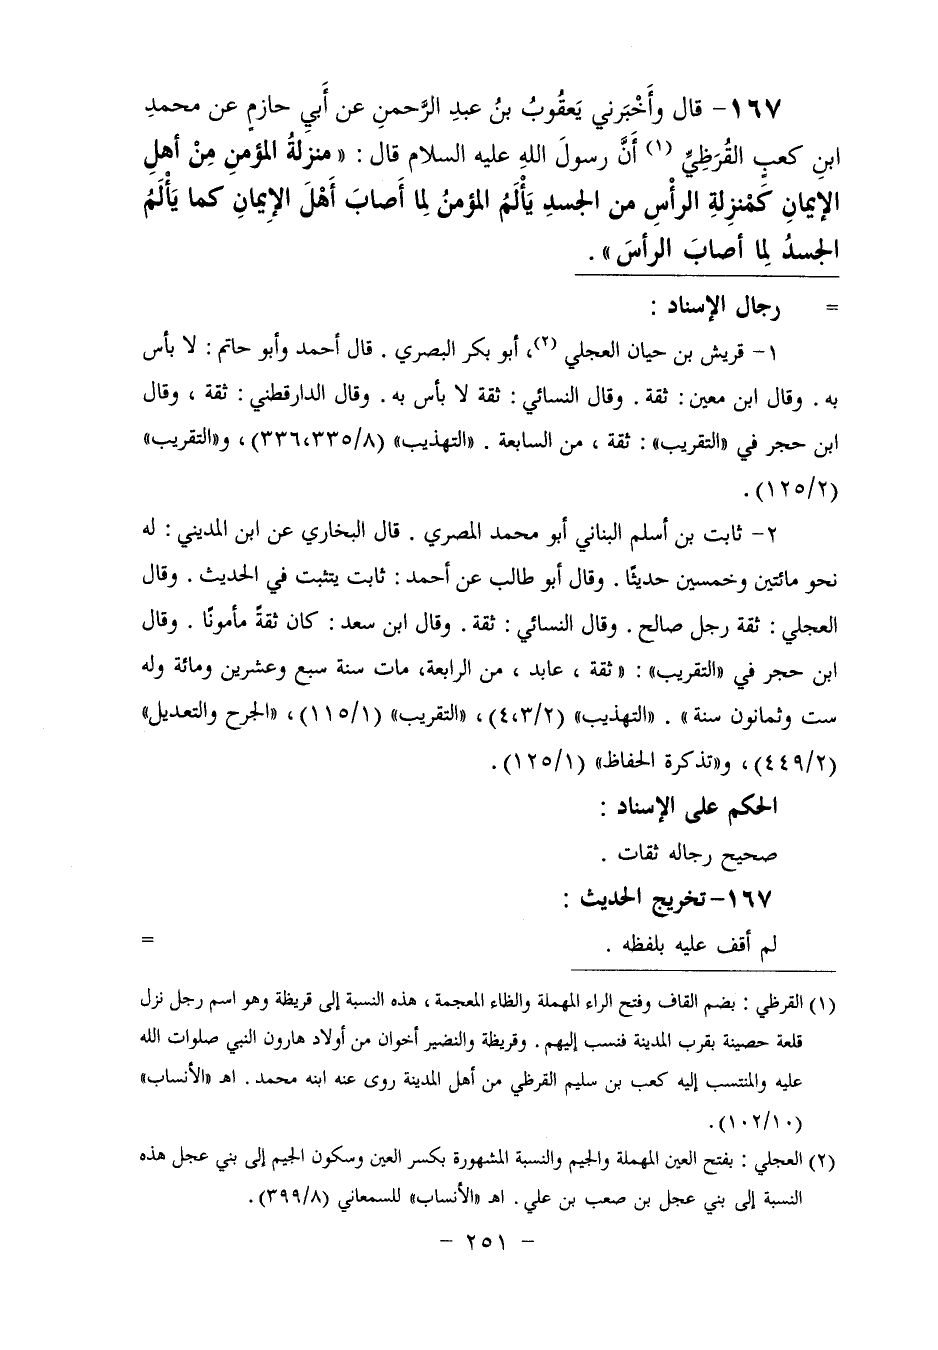 ١٦٧- قال وأَخْبَرني يَعقُوبُ بنُ عبدِ الرَّحمنِ عن أَبي حازمٍ عن محمدِ
ابنِ كعبٍ القُرَظِيِّ (١) أَنَّ رسولَ اللهِ عليه السلام قال : « منزلةُ المؤمنِ مِنْ أهلِ
الإيمانِ كَمْنزِلةِ الرأْسِ من الجسدِ يَأْلَمُ المؤمنُ لِما أَصابَ أَهْلَ الإِيمانِ كما يَأْلَمُ
الجسدُ لِما أصابَ الرأسَ» .
= رجال الإسناد :
١- قريش بن حيان العجلي (٢)، أبو بكر البصري . قال أحمد وأبو حاتم : لا بأس
به . وقال ابن معين : ثقة . وقال النسائي : ثقة لا بأس به . وقال الدارقطني : ثقة ، وقال
ابن حجر في «التقريب» : ثقة ، من السابعة . «التهذيب» (٣٣٦،٣٣٥/٨) ، و«التقريب»
(١٢٥/٢) .
٢- ثابت بن أسلم البناني أبو محمد المصري . قال البخاري عن ابن المديني : له
نحو مائتين وخمسين حديثًا . وقال أبو طالب عن أحمد : ثابت يتثبت في الحديث . وقال
العجلي : ثقة رجل صالح . وقال النسائي : ثقة . وقال ابن سعد : كان ثقةً مأمونًا . وقال
ابن حجر في «التقريب» : «ثقة ، عابد ، من الرابعة، مات سنة سبع وعشرين ومائة وله
ست وثمانون سنة» . «التهذيب» (٤،٣/٢) ، «التقريب» (١١٥/١) ، «الجرح والتعديل»
(٤٤٩/٢) ، و«تذكرة الحفاظ» (١٢٥/١) .
الحكم على الإسناد :
صحيح رجاله ثقات .
١٦٧- تخريج الحديث :
لم أقف عليه بلفظه . =
(١) القرظي : بضم القاف وفتح الراء المهملة والظاء المعجمة ، هذه النسبة إلى قريظة وهو اسم رجل نزل
قلعة حصينة بقرب المدينة فنسب إليهم . وقريظة والنضير أخوان من أولاد هارون النبي صلوات الله
عليه والمنتسب إليه كعب بن سليم القرظي من أهل المدينة روى عنه ابنه محمد . اهـ «الأنساب»
(١٠٢/١٠) .
(٢) العجلي : بفتح العين المهملة والجيم والنسبة المشهورة بكسر العين وسكون الجيم إلى بني عجل هذه
النسبة إلى بني عجل بن صعب بن علي . اهـ «الأنساب» للسمعاني (٣٩٩/٨) .
- ٢٥١ -